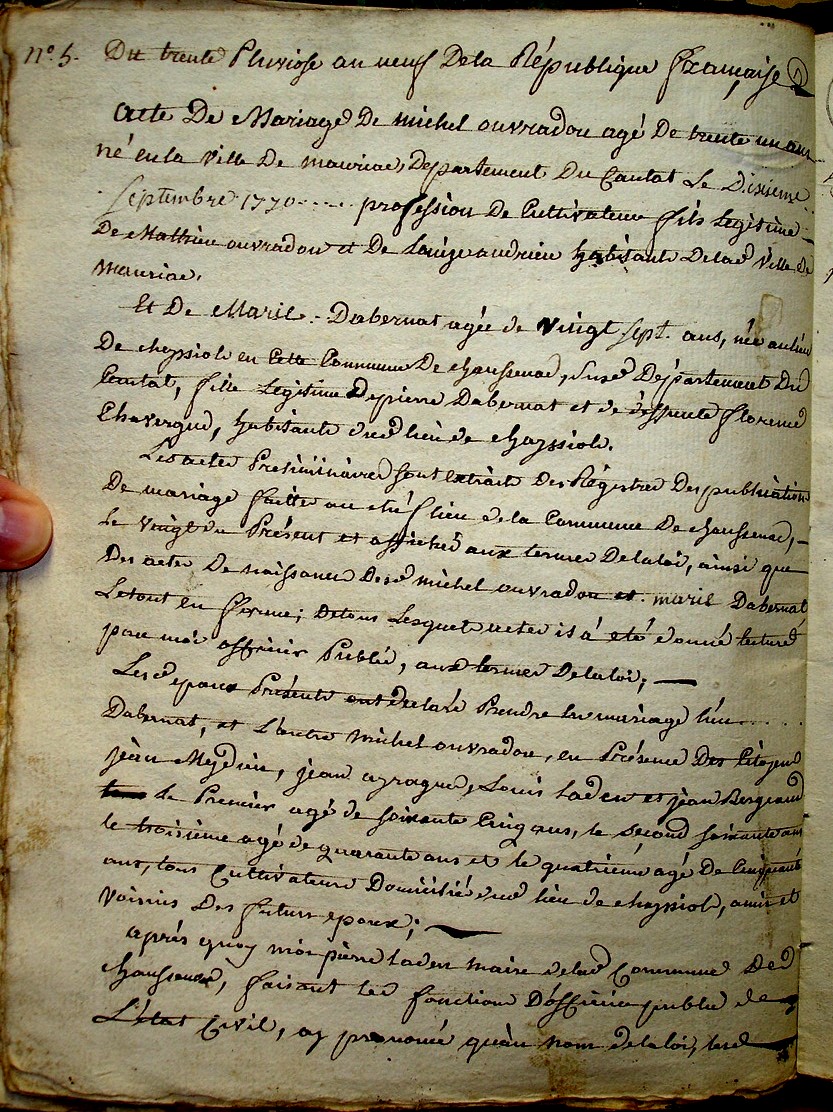 n°. 5. Du trente Pluviose an neuf De la République française
acte De Mariage De michel ouvradou agé De trente un ans
né en la ville De mauriac, Departement Du Cantal Le Dixieme
Septembre 1770 ..... profession De Cultivateur fils Legitime
De Mathieu ouvradou et De Louise andrieu habitants De lad ville De
mauriac.
Et De Marie .- Dabernat agée de vingt sept ans, née au lieu
De cheyssiol en Cette Commune De chaussenac, Susd Département Du
Cantal, fille Legitime De pierre Dabernat et de deffunte florence
Chavergne, habitants dud lieu de chayssiol.
Les actes Preliminaires sont extrait Des Régistres Des publication
De mariage faitte au chef lieu de la Commune De chaussenac,
Le vingt du Présent et affiches aux termes De la loi, ainsi que
Des actes De naissance Desd michel ouvradou et marie Dabernat
Le tout en forme; De tous Lesquels actes il a eté donné lecture
par moi officier Public, aux termes De la loi;
Lesd epoux Présents ont declaré Prendre en mariage l'un .....
Dabernat, et L'autre michel ouvradou, en Présence Des Citoyens
jean jean ayrague, Louis laden et jean Bergeaud
Le Premier agé de soixante Cinq ans, le second soixante ans
le troisieme agé de quarante ans et le quatrieme agé De Cinquante
ans, tous Cultivateurs Domiciliés aud lieu de chayssiol, amis et
voisins Des futurs epoux;
après quoy moi pierre laden maire de lad Commune De
chaussenac, faisant les fonctions D'officier public de
L'état Civil, ay prononcé qu'au nom de la loi, lesd